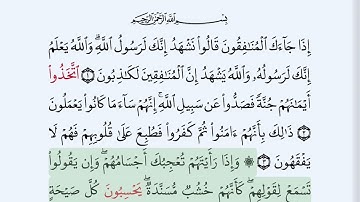 بِسْمِ اللَّهِ الرَّحْمَٰنِ الرَّحِيمِ
إِذَا جَآءَكَ الْمُنَٰفِقُونَ قَالُوا۟ نَشْهَدُ إِنَّكَ لَرَسُولُ اللَّهِ ۗ وَاللَّهُ يَعْلَمُ
إِنَّكَ لَرَسُولُهُۥ وَاللَّهُ يَشْهَدُ إِنَّ الْمُنَٰفِقِينَ لَكَٰذِبُونَ ١ اتَّخَذُوٓا۟
أَيْمَٰنَهُمْ جُنَّةً فَصَدُّوا۟ عَن سَبِيلِ اللَّهِ ۚ إِنَّهُمْ سَآءَ مَا كَانُوا۟ يَعْمَلُونَ
٢ ذَٰلِكَ بِأَنَّهُمْ ءَامَنُوا۟ ثُمَّ كَفَرُوا۟ فَطُبِعَ عَلَىٰ قُلُوبِهِمْ فَهُمْ لَا
يَفْقَهُونَ ٣ ۞ وَإِذَا رَأَيْتَهُمْ تُعْجِبُكَ أَجْسَامُهُمْ ۖ وَإِن يَقُولُوا۟
تَسْمَعْ لِقَوْلِهِمْ ۖ كَأَنَّهُمْ خُشُبٌ مُّسَنَّدَةٌ ۖ يَحْسَبُونَ كُلَّ صَيْحَةٍ